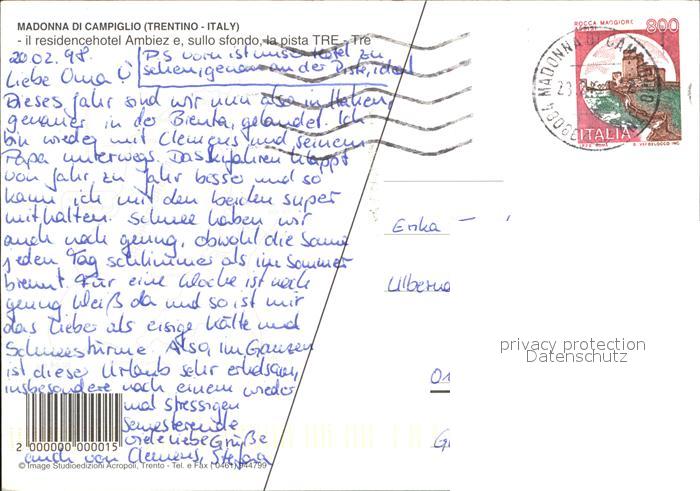 MADONNA DI CAMPIGLIO (TRENTINO - ITALY)
- il residencehotel Ambiez e, sullo sfondo, la pista TRE - Tre
20.02.98.
PS vorn ist unser Hotel zu
sehen, genau an der Piste, ideal
Liebe Oma Ü
Dieses Jahr sind wir nun also in Italien,
genauer in der Brenta, gelandet. Ich
bin wieder mit Clemens und seinem
Papa unterwegs. Das Skifahren klappt
von Jahr zu Jahr besser und so
kann ich mit den beiden super
mithalten. Schnee haben wir
auch noch genug, obwohl die Sonne
jeden Tag schlimmer als im Sommer
brennt. Für eine Woche ist noch
genug Weiß da und so ist mir
das lieber als eisige Kälte und
Schneestürme. Also, im Ganzen
ist dieser Urlaub sehr erholsam,
insbesondere nach einem wieder
und stressigen
semesterende
viele liebe Grüße
auch von Clemens, Stefana
2 000000 000015
© Image Studioedizioni Acropoli, Trento - Tel. e Fax (0461) 944799
ROCCA MAGGIORE
800
ITALIA
38084 MADONNA DI CAMPIGLIO
Erika
Ulberna
01
G
privacy protection
Datenschutz